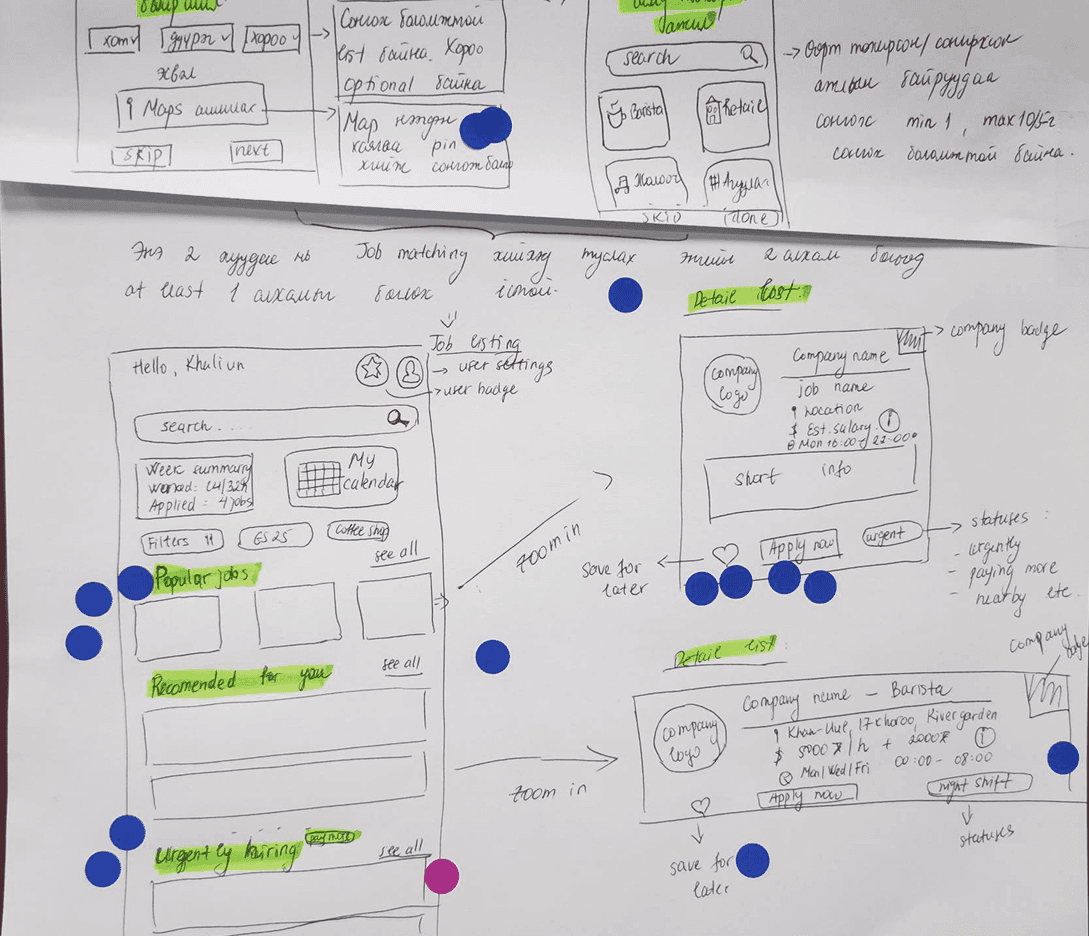 байршил
хот
дүүрэг
хороо
эсвэл
Maps ашиглах
SKIP
next
Сонгох боломжтой
list байна. Хороо
optional байна
Map нэгдэн
pin
хийж сонгож
search
Barista
Retail
Жолооч
Агуулах
SKIP
Done
сонирхсон
ажлын байруудаа
сонгох min 1, max
сонгох боломжтой байна.
Энэ 2 хуудас нь Job matching хийхэд туслах
2 алхам
at least 1 алхамыг болох ёстой.
Job listing
user settings
user badge
Hello, Khaliun
search. . . . .
Week summary
Worked: 14/32h
Applied: 4 jobs
My
calendar
Filters
GS25
Coffee shop
see all
Popular jobs
Recomended for you
see all
Urgently hiring
pay more
see all
zoom in
zoom in
Detail list.
company badge
company
logo
Company name
job name
Location
$ Est. salary i
Mon 16:00 - 22:00
short info
Apply now
urgent
save for
later
statuses:
- urgently
- paying more
- nearby etc.
Detail list:
company
badge
company
logo
Company name - Barista
Khan-Uul, 17 khoroo, Rivergarden
$ 8000₮/h + 2000₮ i
Mon/Wed/Fri 00:00 - 08:00
Apply now
night shift
save for
later
statuses